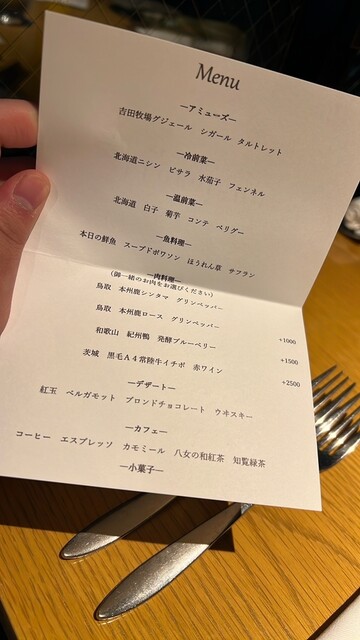 Menu
―アミューズ―
吉田牧場グジェール シガール タルトレット
―冷前菜―
北海道ニシン ビサラ 水茄子 フェンネル
―温前菜―
北海道 白子 菊芋 コンテ ペリグー
―魚料理―
本日の鮮魚 スープドポワソン ほうれん草 サフラン
―肉料理―
(御一緒のお肉をお選びください)
鳥取 本州鹿シンタマ グリンペッパー
鳥取 本州鹿ロース グリンペッパー +1000
和歌山 紀州鴨 発酵ブルーベリー +1500
茨城 黒毛A4常陸牛イチボ 赤ワイン +2500
―デザート―
紅玉 ベルガモット ブロンドチョコレート ウヰスキー
―カフェ―
コーヒー エスプレッソ カモミール 八女の和紅茶 知覧緑茶
―小菓子―